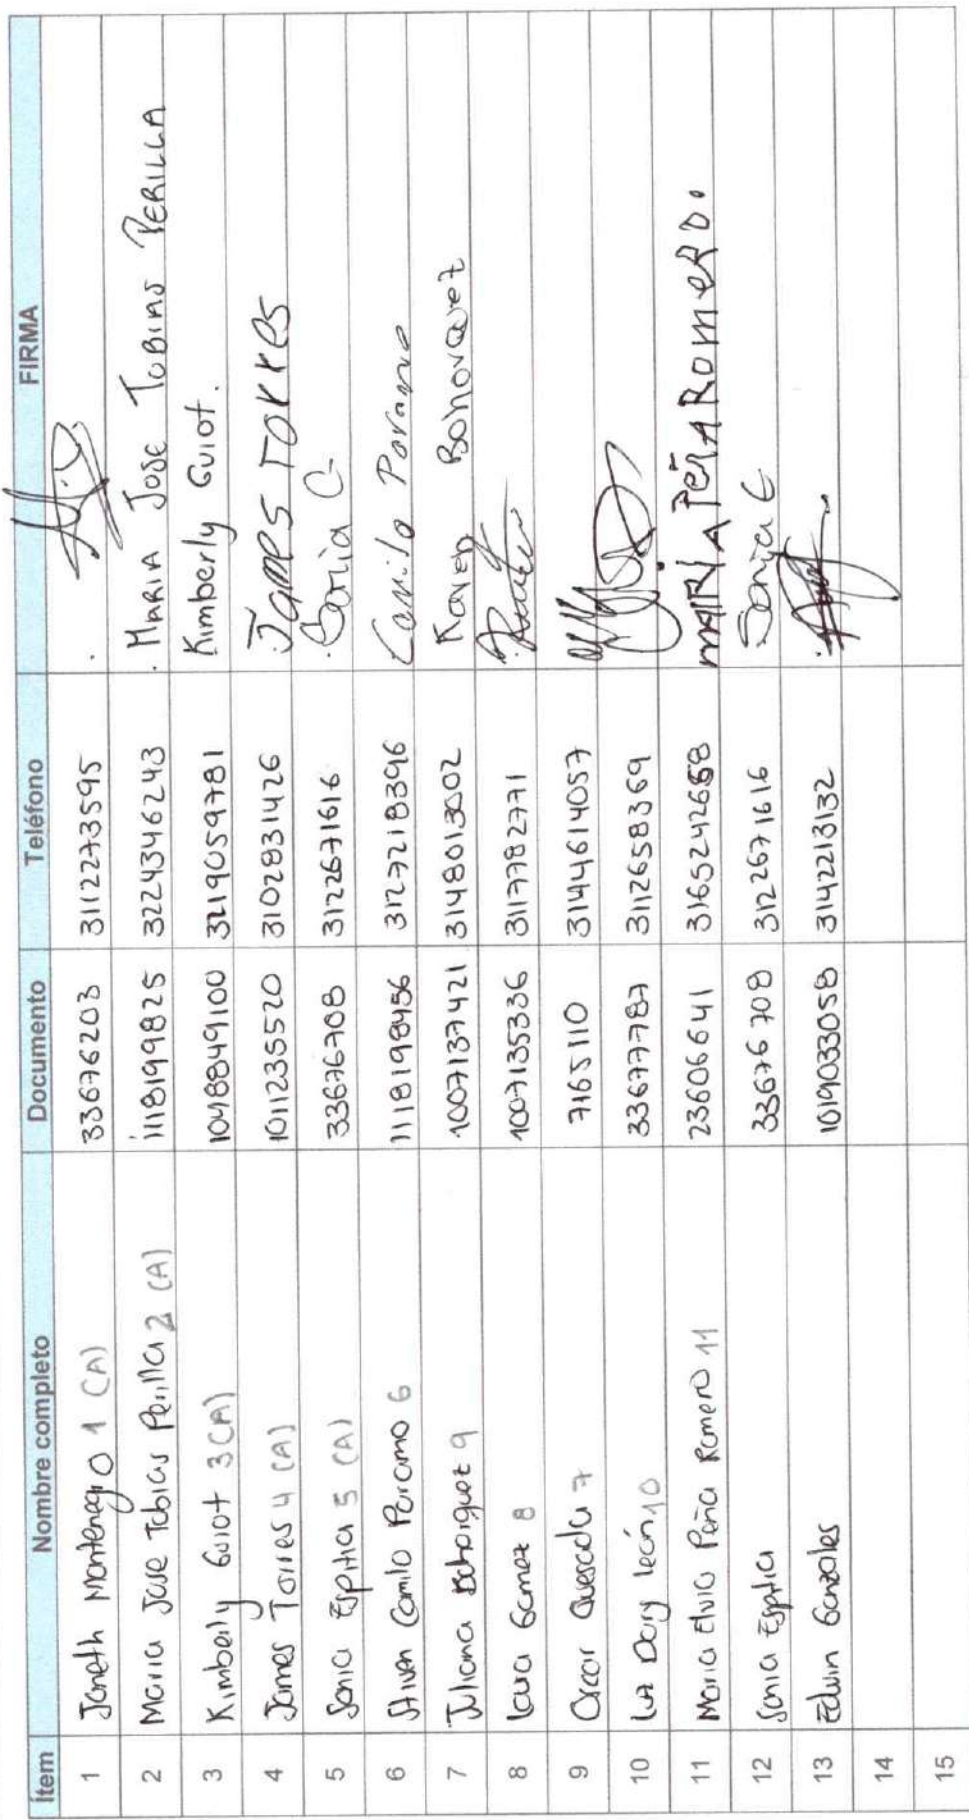 Ítem Nombre completo Documento Teléfono FIRMA
1 Janeth Montenegro 1 (A) 33676203 3112273595
2 Maria Jose Tobias Perilla 2 (A) 1118199825 3224346243 MARIA JOSE TOBIAS PERILLA
3 Kimberly Guiot 3 (A) 1048849100 3219059781 Kimberly Guiot.
4 James Torres 4 (A) 1011235520 3102831426 James Torres
5 Sonia Espitia 5 (A) 33676708 3122671616 Sonia E
6 Stiven Camilo Paramo 6 1118198456 3127218396 Camilo Paramo
7 Juliana Bohorquez 9 1007137421 3148013002 Karen Bohorquez
8 Laura Gamez 8 1007135336 3117782771
9 Oscar Quesada 7 7165110 3144614057
10 Luz Dary león 10 33677787 3112658369
11 Maria Elvia Peña Romero 11 23606641 3165242658 MARIA PEÑA ROMERO.
12 Sonia Espitia 33676708 3122671616 Sonia E
13 Edwin Gonzales 1019033058 3142213132
14
15